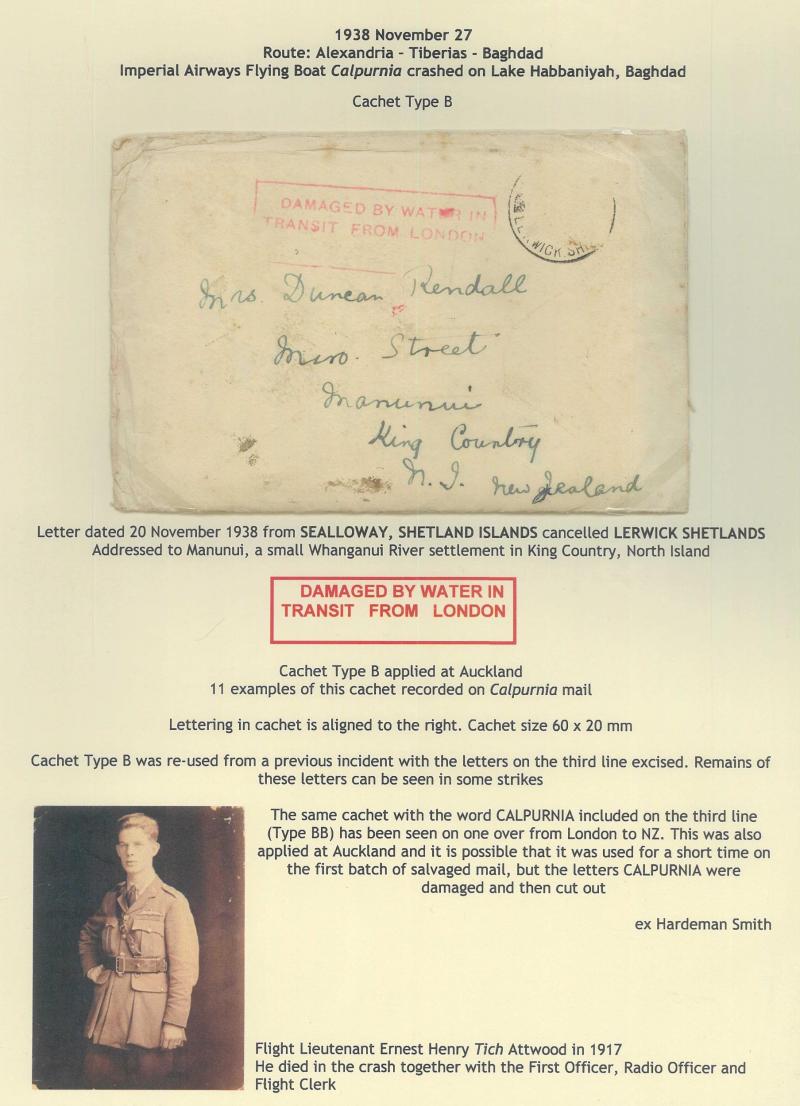 1938 November 27
Route: Alexandria - Tiberias - Baghdad
Imperial Airways Flying Boat Calpurnia crashed on Lake Habbaniyah, Baghdad
Cachet Type B
DAMAGED BY WATER IN
TRANSIT FROM LONDON
LERWICK SH
Mrs. Duncan Rendall
Miro. Street
Manunui
King Country
N. I. New Zealand
Letter dated 20 November 1938 from SEALLOWAY, SHETLAND ISLANDS cancelled LERWICK SHETLANDS
Addressed to Manunui, a small Whanganui River settlement in King Country, North Island
DAMAGED BY WATER IN
TRANSIT FROM LONDON
Cachet Type B applied at Auckland
11 examples of this cachet recorded on Calpurnia mail
Lettering in cachet is aligned to the right. Cachet size 60 x 20 mm
Cachet Type B was re-used from a previous incident with the letters on the third line excised. Remains of
these letters can be seen in some strikes
The same cachet with the word CALPURNIA included on the third line
(Type BB) has been seen on one over from London to NZ. This was also
applied at Auckland and it is possible that it was used for a short time on
the first batch of salvaged mail, but the letters CALPURNIA were
damaged and then cut out
ex Hardeman Smith
Flight Lieutenant Ernest Henry Tich Attwood in 1917
He died in the crash together with the First Officer, Radio Officer and
Flight Clerk